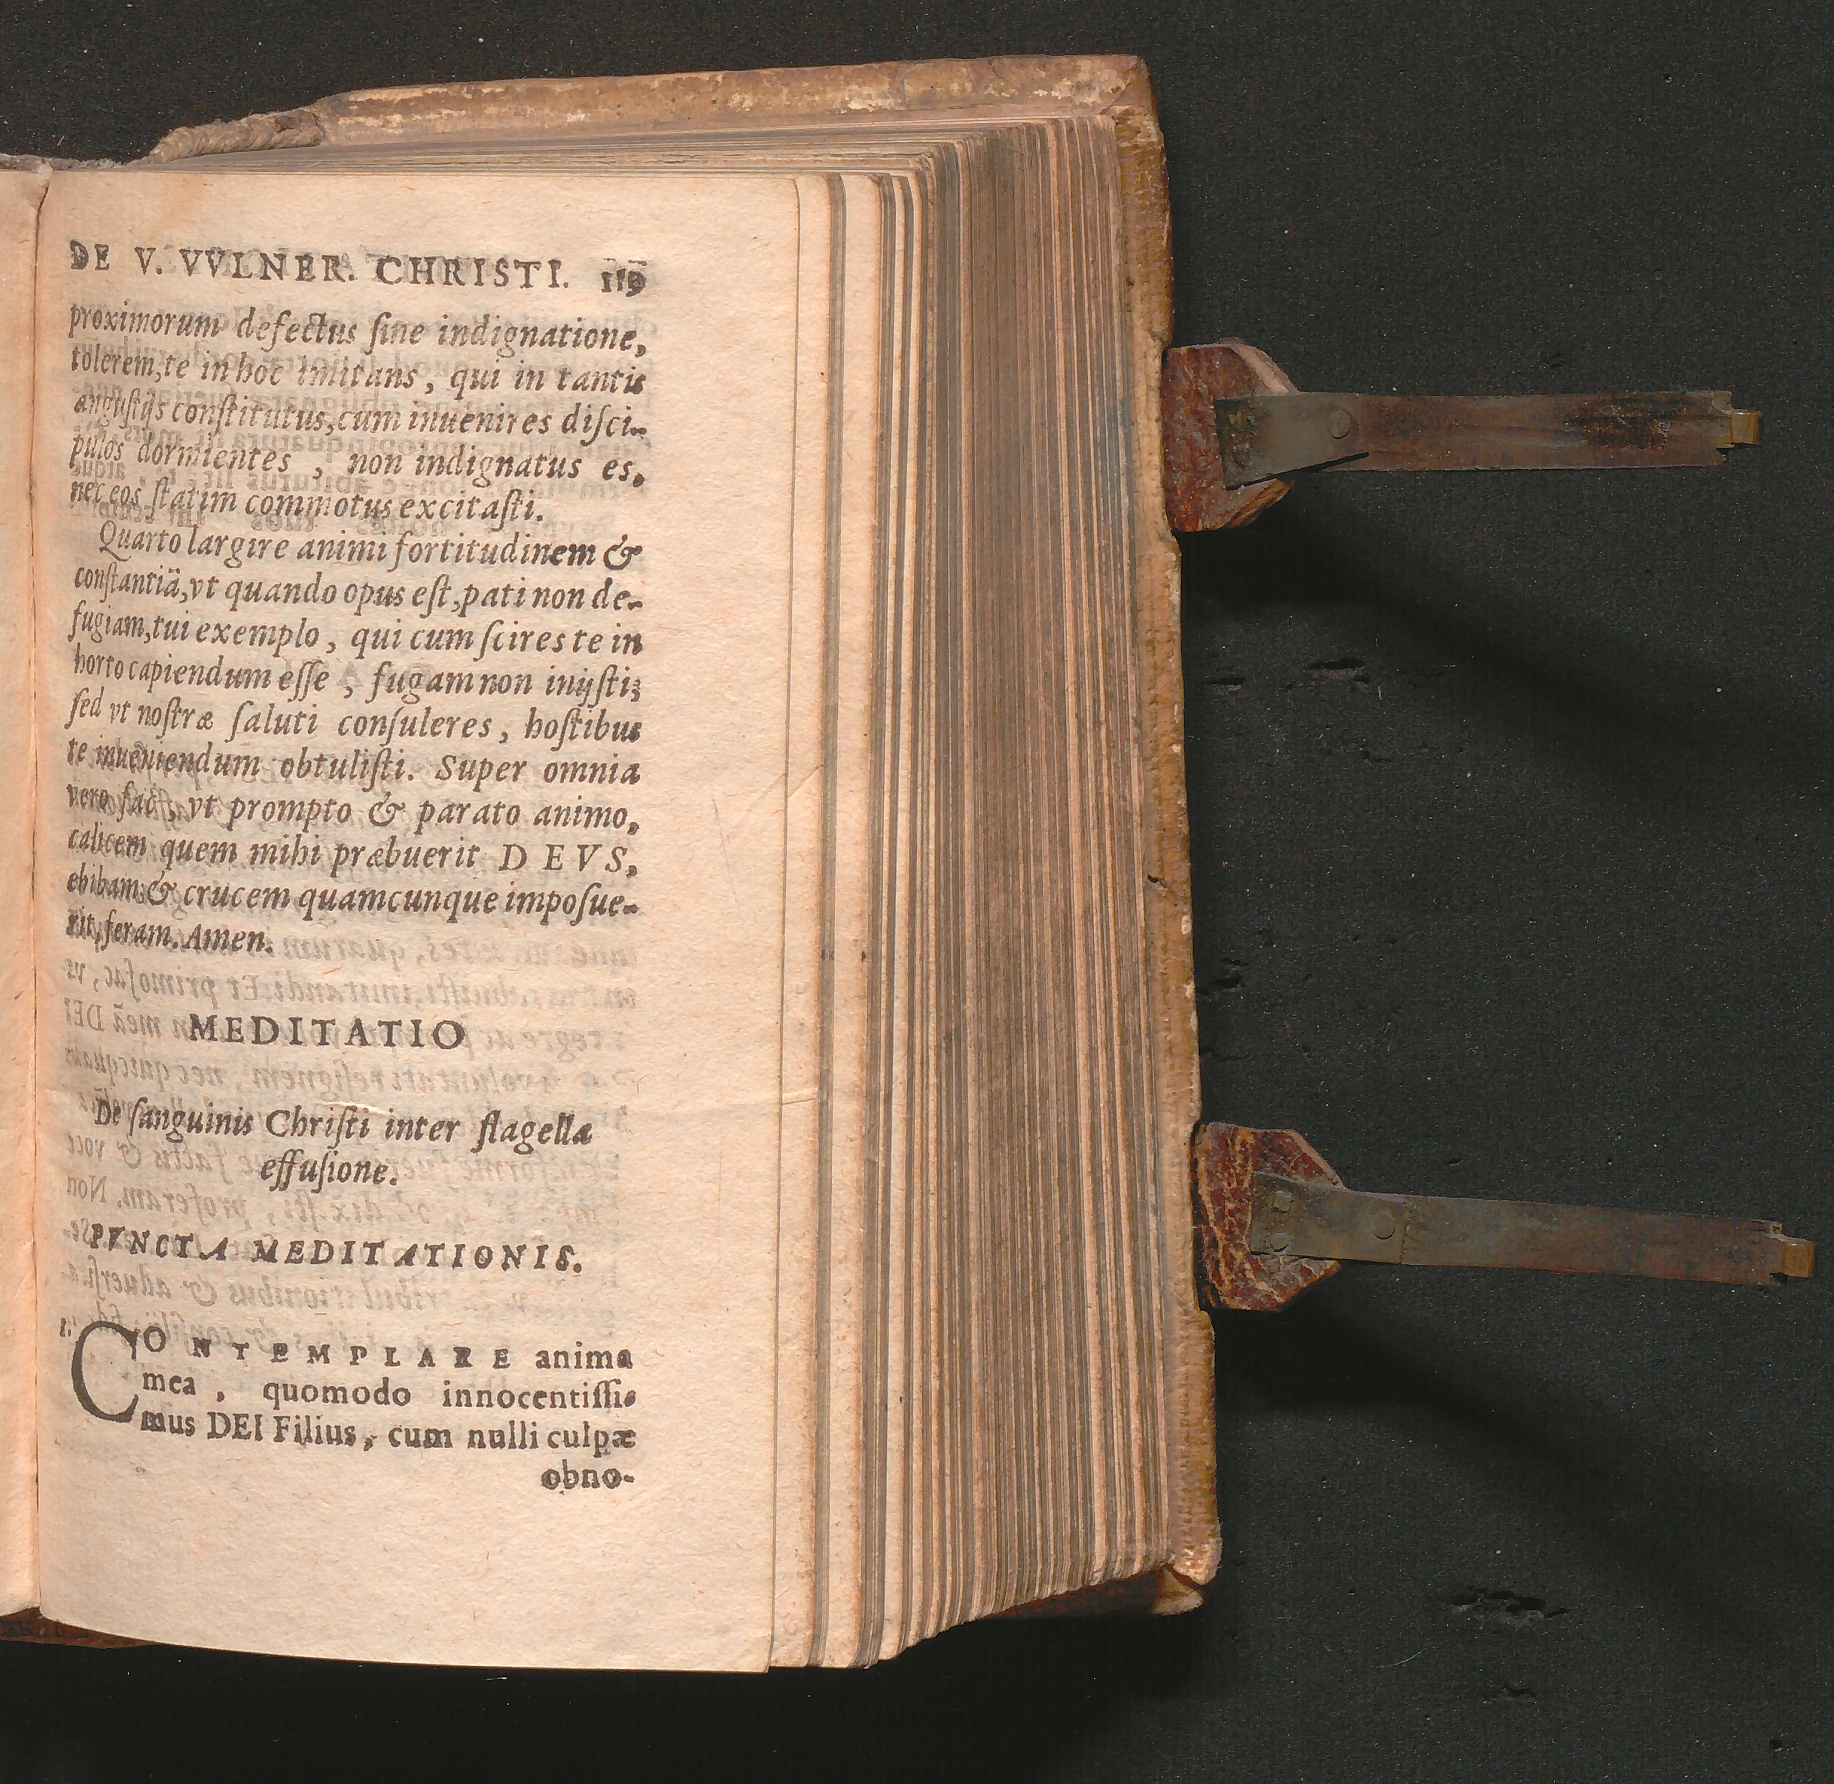 DE V. VVLNER. CHRISTI. 119
proximorum defectus ſine indignatione,
tolerem, te in hoc imitans, qui in tantis
anguſtijs conſtitutus, cum inuenires diſci-
pulos dormientes, non indignatus es,
nec eos ſtatim commotus excitaſti.
Quarto largire animi fortitudinem &
conſtantiā, vt quando opus eſt, pati non de-
fugiam, tui exemplo, qui cum ſcires te in
horto capiendum eſſe, fugam non inijſti;
ſed vt noſtræ ſaluti conſuleres, hoſtibus
te inueniendum obtuliſti. Super omnia
vero fac, vt prompto & parato animo,
calicem quem mihi præbuerit DEVS,
ebibam: & crucem quamcunque impoſue-
rit, feram. Amen.
MEDITATIO
De ſanguinis Chriſti inter flagella
effuſione.
PVNCTA MEDITATIONIS.
1. CONTEMPLARE anima
mea, quomodo innocentiſſi-
mus DEI Filius, cum nulli culpæ
obno-